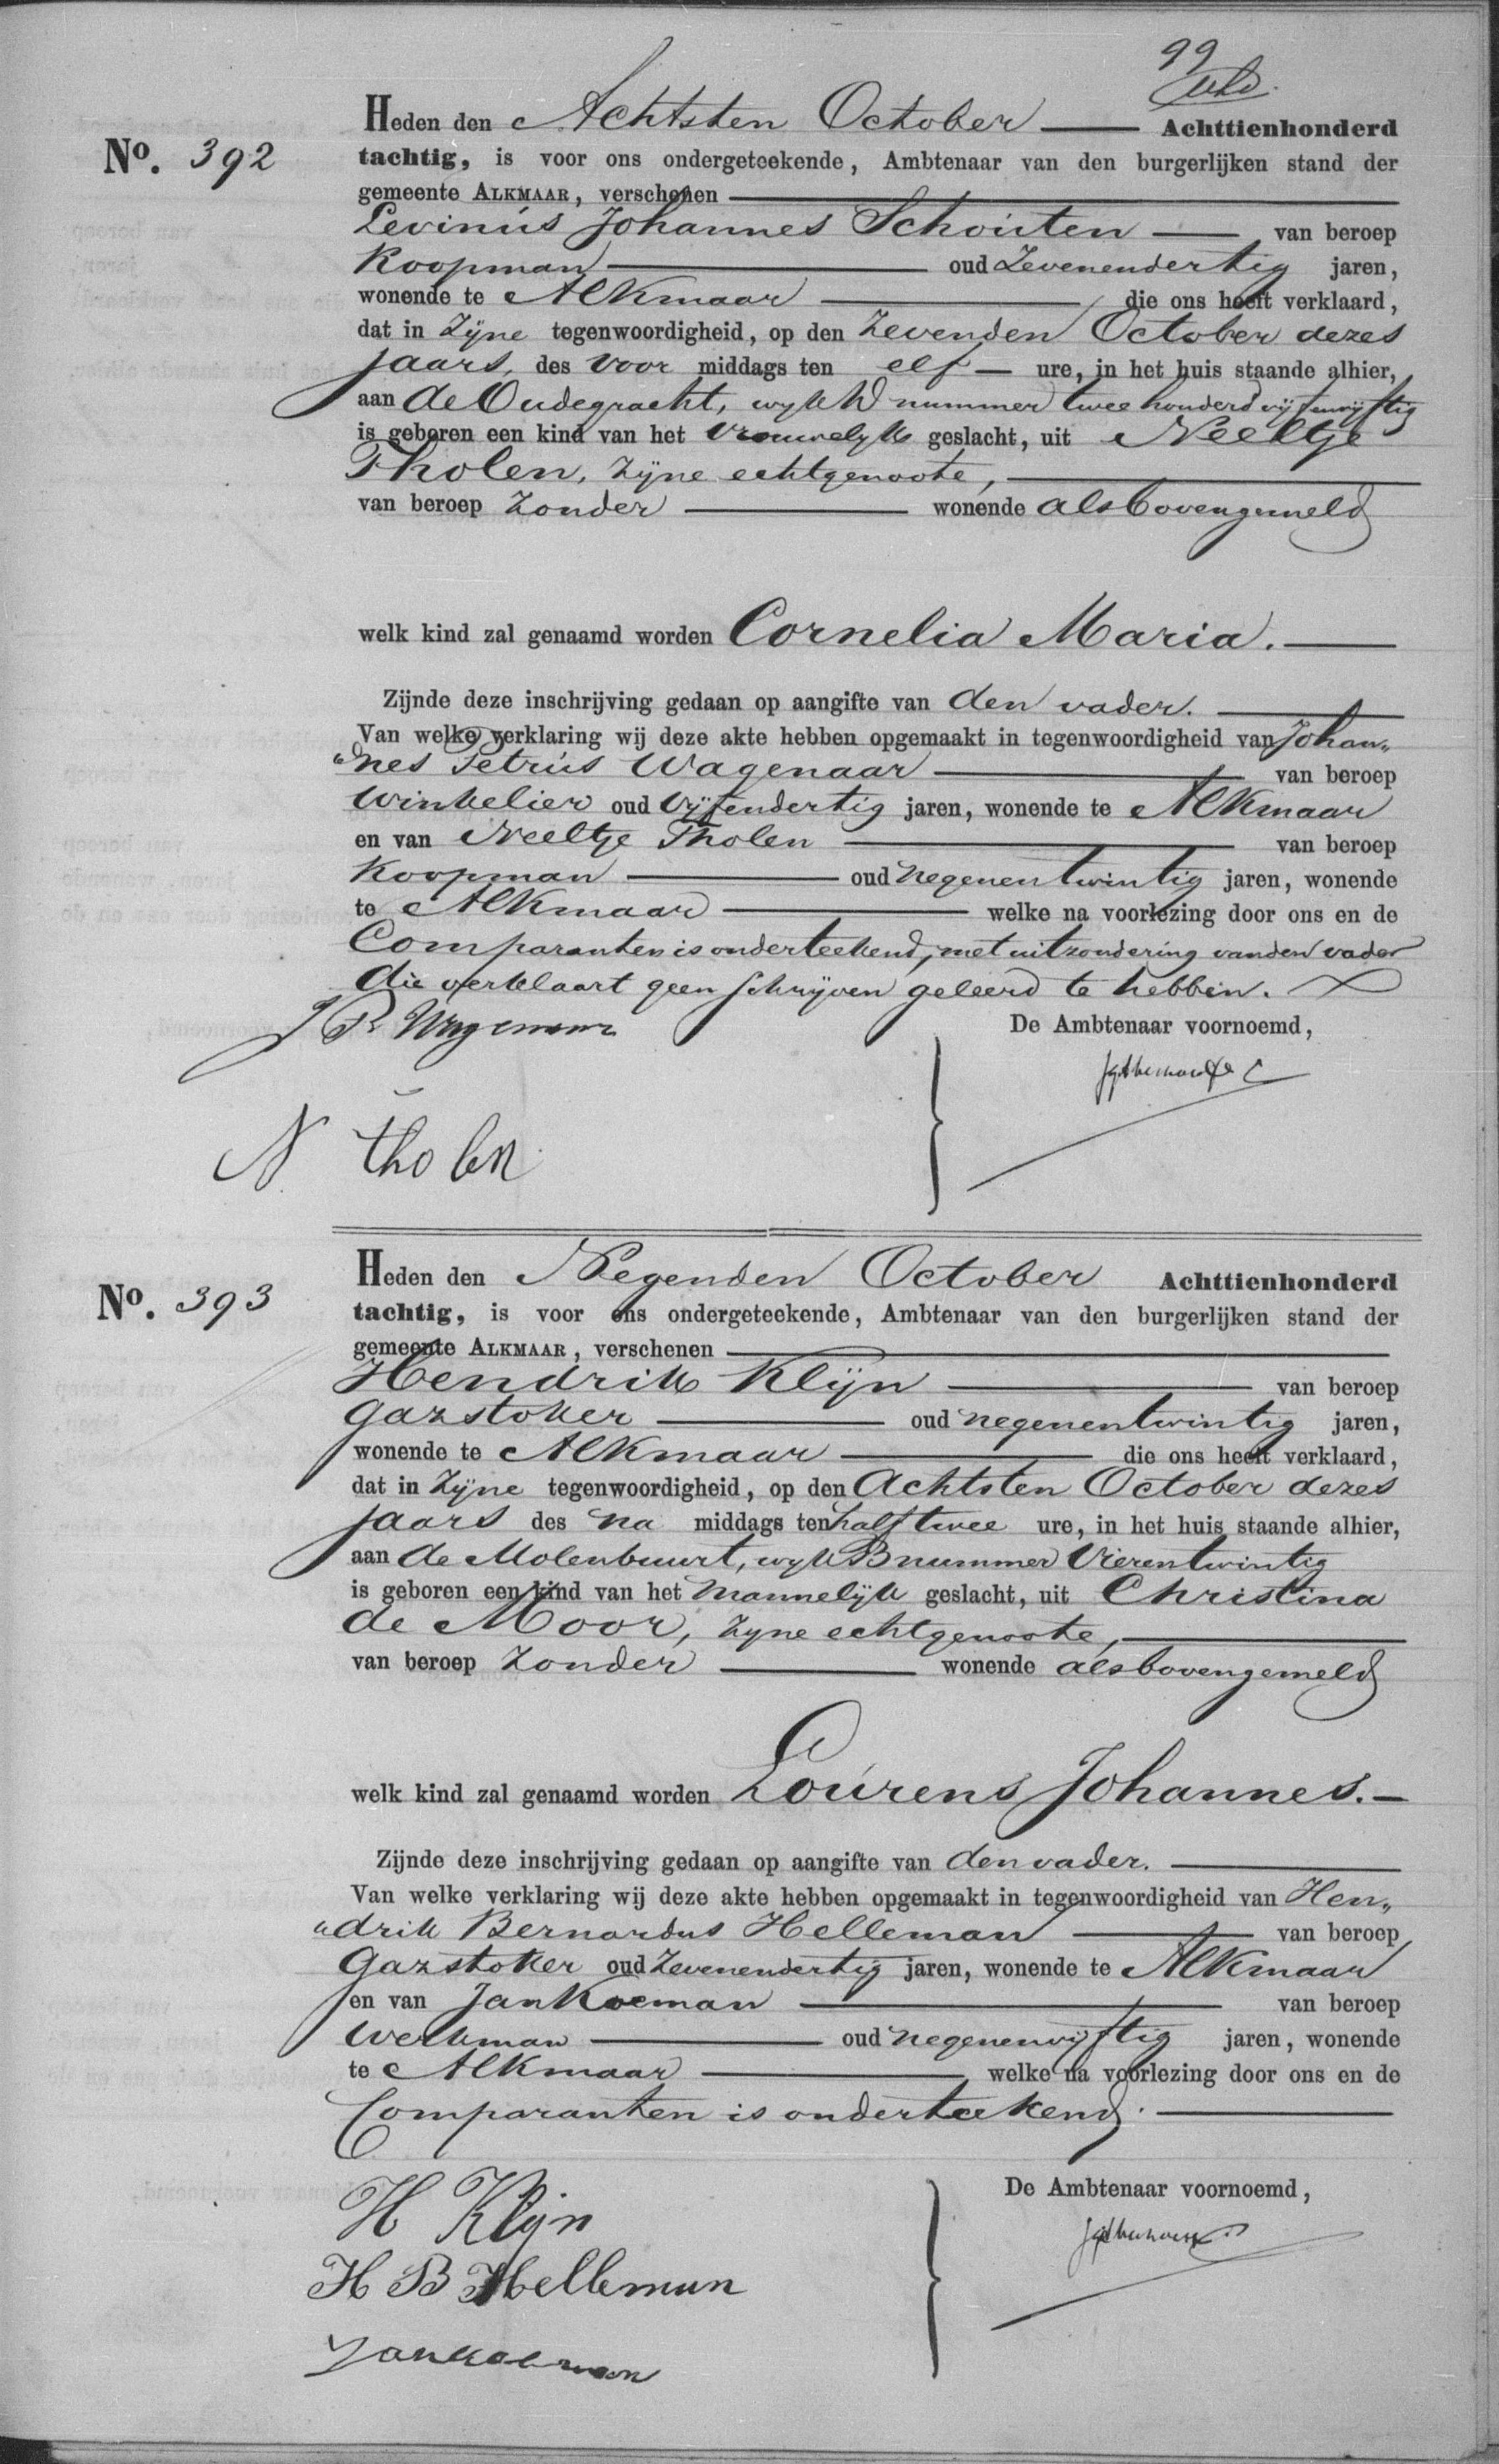 99
Heden den Achtsten October Achttienhonderd
No. 392
tachtig, is voor ons ondergeteekende, Ambtenaar van den burgerlijken stand der
gemeente ALKMAAR, verschenen
Levinus Johannes Schouten van beroep
Koopman oud Zevenendertig jaren,
wonende te Alkmaar die ons heeft verklaard,
dat in Zijne tegenwoordigheid, op den Zevenden October dezes
jaars, des voor middags ten elf ure, in het huis staande alhier,
aan de Oudegracht, wyk D nummer twee honderd vijfenvijftig
is geboren een kind van het Vrouwelyk geslacht, uit Neeltje
Tholen, Zijne echtgenoote,
van beroep Zonder wonende als bovengemeld
welk kind zal genaamd worden Cornelia Maria.
Zijnde deze inschrijving gedaan op aangifte van den vader.
Van welke verklaring wij deze akte hebben opgemaakt in tegenwoordigheid van Johan„
„nes Petrus Wagenaar van beroep
Winkelier oud Vijfendertig jaren, wonende te Alkmaar
en van Neeltje Tholen van beroep
Koopman oud Negenentwintig jaren, wonende
te Alkmaar welke na voorlezing door ons en de
Comparanten is onderteekend, met uitzondering van den vader
die verklaart geen schrijven geleerd te hebben.
J P Wagenaar De Ambtenaar voornoemd,
N Tholen
Heden den Negenden October Achttienhonderd
No. 393
tachtig, is voor ons ondergeteekende, Ambtenaar van den burgerlijken stand der
gemeente ALKMAAR, verschenen
Hendrik Klijn van beroep
Gazstoker oud negenentwintig jaren,
wonende te Alkmaar die ons heeft verklaard,
dat in Zijne tegenwoordigheid, op den Achtsten October dezes
jaars des na middags ten half twee ure, in het huis staande alhier,
aan de Molenbuurt, wyk B nummer Vierentwintig
is geboren een kind van het Mannelijk geslacht, uit Christina
de Moor, Zyne echtgenoote,
van beroep Zonder wonende als bovengemeld
welk kind zal genaamd worden Lourens Johannes.
Zijnde deze inschrijving gedaan op aangifte van den vader.
Van welke verklaring wij deze akte hebben opgemaakt in tegenwoordigheid van Hen„
„drik Bernardus Helleman van beroep
Gazstoker oud Zevenendertig jaren, wonende te Alkmaar
en van Jan Koeman van beroep
Werkman oud negenenvijftig jaren, wonende
te Alkmaar welke na voorlezing door ons en de
Comparanten is onderteekend.
De Ambtenaar voornoemd,
H Klijn
H B Helleman
Jan Koeman